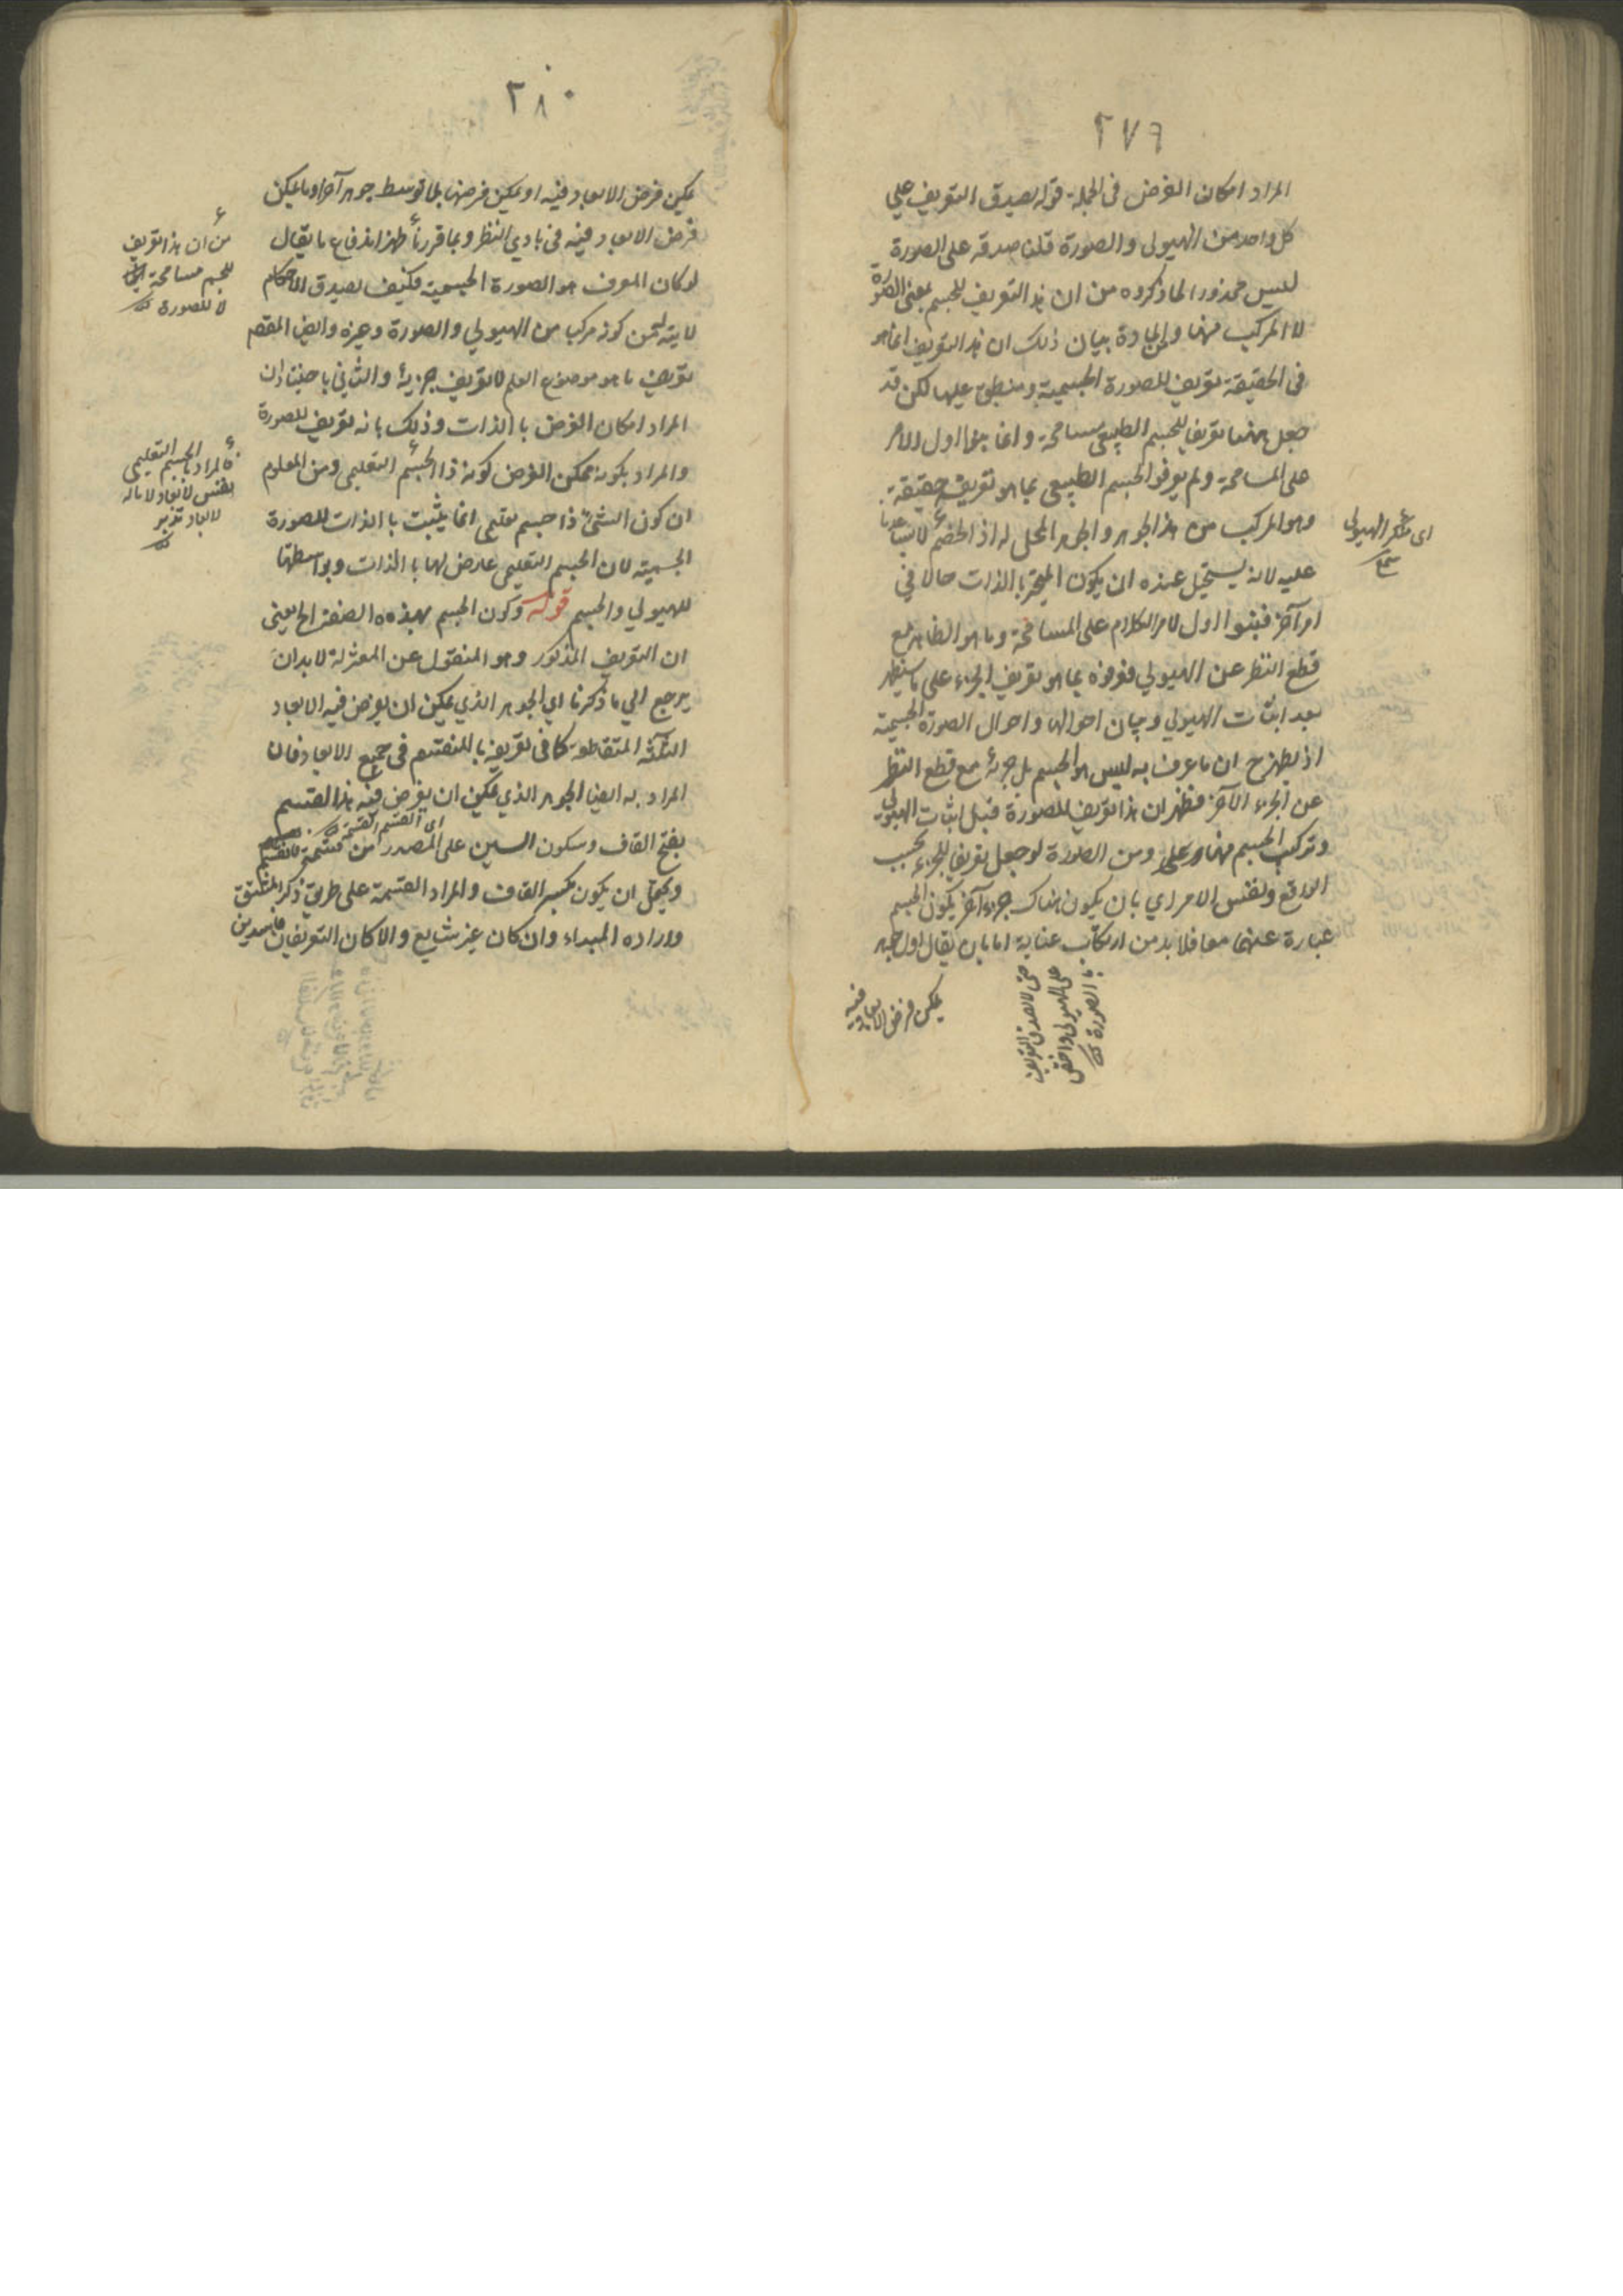 ٢٧٩
المراد امكان الفرض فى الجملة قوله يصدق التعريف علي
كل واحد من الهيولى والصورة قلنا صدقه على الصورة
ليس محذورا لما ذكروه من ان هذا التعريف للجسم بمعنى الصورة
لا المركب منها والمادة بيان ذلك ان هذا التعريف انما هو
فى الحقيقة تعريف للصورة الجسمية ومنطبق عليها لكن قد
جعل ههنا تعريفا للجسم الطبيعى مسامحة وانما بنوا اول الامر
على المسامحة ولم يعرفوا الجسم الطبيعى بما هو تعريفه حقيقة
وهو المركب من هذا الجوهر والجوهر المحل له اذ الخصم لا يساعدنا
عليه لانه يستحيل عنده ان يكون المتحيز بالذات حالا في
امر آخر فبنوا اول الامر الكلام على المسامحة وما هو الظاهر مع
قطع النظر عن الهيولي فعرفوه بما هو تعريف الجزء على ما سيظهر
بعد اثبات الهيولي وبيان احوالها واحوال الصورة الجسمية
اذ يظهر ح ان ما عرف به ليس هو الجسم بل جزئه مع قطع النظر
عن الجزء الآخر فظهر ان هذا تعريف للصورة قبل اثبات الهيولى
وتركب الجسم منها ومن الصورة لو جعل تعريفا للجزء بحسب
الواقع ونفس الامر اي بان يكون هناك جزء آخر يكون الجسم
عبارة عنهما معا فلا بد من ارتكاب عناية اما بان يقال اول جوهر
يمكن فرض الابعاد فيه
اى منكر الهيولى
حتى لا يصدق التعريف
على الهيولى واختص
بالصورة
٢٨٠
يمكن فرض الابعاد فيه او يمكن فرضها بلا توسط جوهر آخر او ما يمكن
فرض الابعاد فيه فى بادي النظر وبما قررنا ظهر اندفاع ما يقال
لو كان المعرف هو الصورة الجسمية فكيف يصدق الاحكام
الآتية من كونه مركبا من الهيولي والصورة وغيره وايضا المقصود
تعريف ما هو موضوع العلم لا تعريف جزئه والثاني باختيار ان
المراد امكان الفرض بالذات وذلك بانه تعريف للصورة
والمراد بكونه ممكن الفرض كونه ذا الجسم التعليمى ومن المعلوم
ان كون الشئ ذا جسم تعليمى انما يثبت بالذات للصورة
الجسمية لان الجسم التعليمى عارض لها بالذات وبواسطتها
للهيولي والجسم قوله وكون الجسم بهذه الصفة الخ يعنى
ان التعريف المذكور وهو المنقول عن المعتزلة لا بد ان
يرجع الي ما ذكرنا اي الجوهر الذي يمكن ان يفرض فيه الابعاد
الثلثة المتقاطعة كما فى تعريفه بالمنقسم فى جميع الابعاد فان
المراد به ايضا الجوهر الذي يمكن ان يفرض فيه هذا القسم
بفتح القاف وسكون السين على المصدر من قسمته فانقسم
اى القسم القسمة
ويحتمل ان يكون بكسر القاف والمراد القسمة على طريق ذكر المشتق
وارادة المبداء وان كان غير شايع والا كان التعريفان فاسدين
من ان هذا تعريف
للجسم مسامحة
لا للصورة
فالمراد بالجسم التعليمى
نفس الابعاد لا ماله
الابعاد تدبر